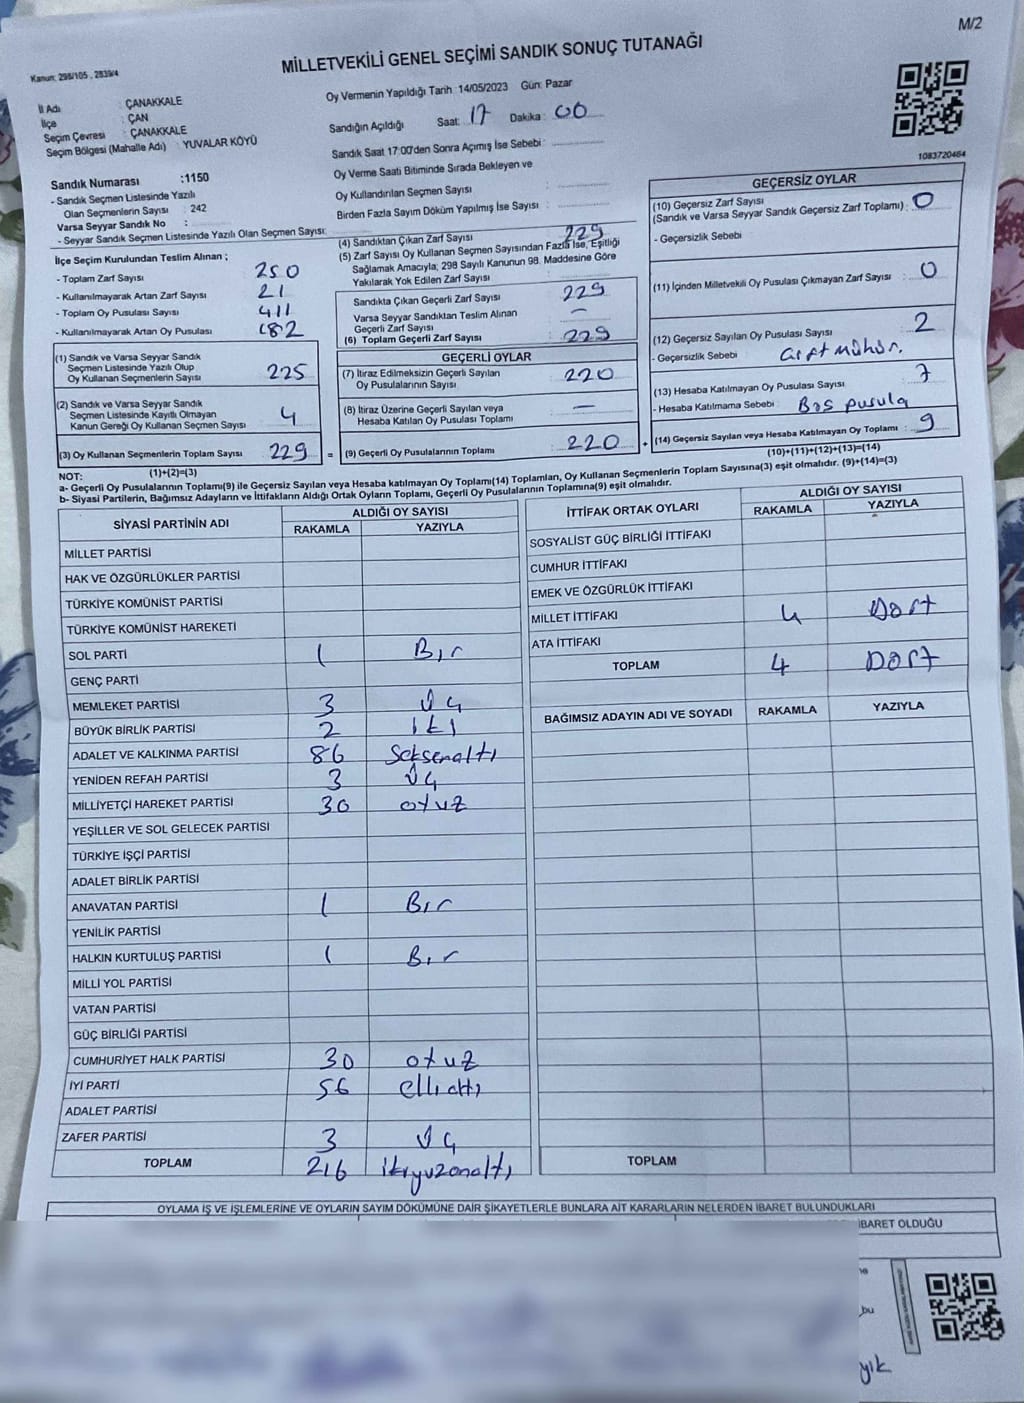 M/2
MİLLETVEKİLİ GENEL SEÇİMİ SANDIK SONUÇ TUTANAĞI
Kanun: 298/105 , 2839/4
İl Adı : ÇANAKKALE
İlçe : ÇAN
Seçim Çevresi : ÇANAKKALE
Seçim Bölgesi (Mahalle Adı) : YUVALAR KÖYÜ
Sandık Numarası :1150
- Sandık Seçmen Listesinde Yazılı
Olan Seçmenlerin Sayısı : 242
Varsa Seyyar Sandık No :
- Seyyar Sandık Seçmen Listesinde Yazılı Olan Seçmen Sayısı:
Oy Vermenin Yapıldığı Tarih : 14/05/2023 Gün: Pazar
Sandığın Açıldığı Saat: 17 Dakika : 00
Sandık Saat 17:00'den Sonra Açımış İse Sebebi :
Oy Verme Saati Bitiminde Sırada Bekleyen ve
Oy Kullandırılan Seçmen Sayısı :
Birden Fazla Sayım Döküm Yapılmış İse Sayısı :
1083720464
İlçe Seçim Kurulundan Teslim Alınan ;
- Toplam Zarf Sayısı : 250
- Kullanılmayarak Artan Zarf Sayısı : 21
- Toplam Oy Pusulası Sayısı : 411
- Kullanılmayarak Artan Oy Pusulası : 182
(1) Sandık ve Varsa Seyyar Sandık
Seçmen Listesinde Yazılı Olup
Oy Kullanan Seçmenlerin Sayısı : 225
(2) Sandık ve Varsa Seyyar Sandık
Seçmen Listesinde Kayıtlı Olmayan
Kanun Gereği Oy Kullanan Seçmen Sayısı : 4
(3) Oy Kullanan Seçmenlerin Toplam Sayısı : 229 =
(1)+(2)=(3)
(4) Sandıktan Çıkan Zarf Sayısı : 229
(5) Zarf Sayısı Oy Kullanan Seçmen Sayısından Fazla İse, Eşitliği
Sağlamak Amacıyla; 298 Sayılı Kanunun 98. Maddesine Göre
Yakılarak Yok Edilen Zarf Sayısı :
Sandıkta Çıkan Geçerli Zarf Sayısı : 229
Varsa Seyyar Sandıktan Teslim Alınan
Geçerli Zarf Sayısı : –
(6) Toplam Geçerli Zarf Sayısı : 229
GEÇERLİ OYLAR
(7) İtiraz Edilmeksizin Geçerli Sayılan
Oy Pusulalarının Sayısı : 220
(8) İtiraz Üzerine Geçerli Sayılan veya
Hesaba Katılan Oy Pusulası Toplamı : –
(9) Geçerli Oy Pusulalarının Toplamı : 220 +
GEÇERSİZ OYLAR
(10) Geçersiz Zarf Sayısı
(Sandık ve Varsa Seyyar Sandık Geçersiz Zarf Toplamı) : 0
- Geçersizlik Sebebi
(11) İçinden Milletvekili Oy Pusulası Çıkmayan Zarf Sayısı : 0
(12) Geçersiz Sayılan Oy Pusulası Sayısı : 2
- Geçersizlik Sebebi : Çift mühür.
(13) Hesaba Katılmayan Oy Pusulası Sayısı : 7
- Hesaba Katılmama Sebebi : Boş pusula
(14) Geçersiz Sayılan veya Hesaba Katılmayan Oy Toplamı : 9
(10)+(11)+(12)+(13)=(14)
NOT:
a- Geçerli Oy Pusulalarının Toplamı(9) ile Geçersiz Sayılan veya Hesaba katılmayan Oy Toplamı(14) Toplamları, Oy Kullanan Seçmenlerin Toplam Sayısına(3) eşit olmalıdır. (9)+(14)=(3)
b- Siyasi Partilerin, Bağımsız Adayların ve İttifakların Aldığı Ortak Oyların Toplamı, Geçerli Oy Pusulalarının Toplamına(9) eşit olmalıdır.
SİYASİ PARTİNİN ADI
ALDIĞI OY SAYISI
RAKAMLA YAZIYLA
MİLLET PARTİSİ
HAK VE ÖZGÜRLÜKLER PARTİSİ
TÜRKİYE KOMÜNİST PARTİSİ
TÜRKİYE KOMÜNİST HAREKETİ
SOL PARTİ 1 Bir
GENÇ PARTİ
MEMLEKET PARTİSİ 3 Üç
BÜYÜK BİRLİK PARTİSİ 2 iki
ADALET VE KALKINMA PARTİSİ 86 Seksenaltı
YENİDEN REFAH PARTİSİ 3 Üç
MİLLİYETÇİ HAREKET PARTİSİ 30 otuz
YEŞİLLER VE SOL GELECEK PARTİSİ
TÜRKİYE İŞÇİ PARTİSİ
ADALET BİRLİK PARTİSİ
ANAVATAN PARTİSİ 1 Bir
YENİLİK PARTİSİ
HALKIN KURTULUŞ PARTİSİ 1 Bir
MİLLİ YOL PARTİSİ
VATAN PARTİSİ
GÜÇ BİRLİĞİ PARTİSİ
CUMHURİYET HALK PARTİSİ 30 otuz
İYİ PARTİ 56 elli altı
ADALET PARTİSİ
ZAFER PARTİSİ 3 Üç
TOPLAM 216 ikiyuzonaltı
İTTİFAK ORTAK OYLARI
ALDIĞI OY SAYISI
RAKAMLA YAZIYLA
SOSYALİST GÜÇ BİRLİĞİ İTTİFAKI
CUMHUR İTTİFAKI
EMEK VE ÖZGÜRLÜK İTTİFAKI
MİLLET İTTİFAKI 4 Dört
ATA İTTİFAKI
TOPLAM 4 Dört
BAĞIMSIZ ADAYIN ADI VE SOYADI RAKAMLA YAZIYLA
TOPLAM
OYLAMA İŞ VE İŞLEMLERİNE VE OYLARIN SAYIM DÖKÜMÜNE DAİR ŞİKAYETLERLE BUNLARA AİT KARARLARIN NELERDEN İBARET BULUNDUKLARI
İBARET OLDUĞU
bu
yık